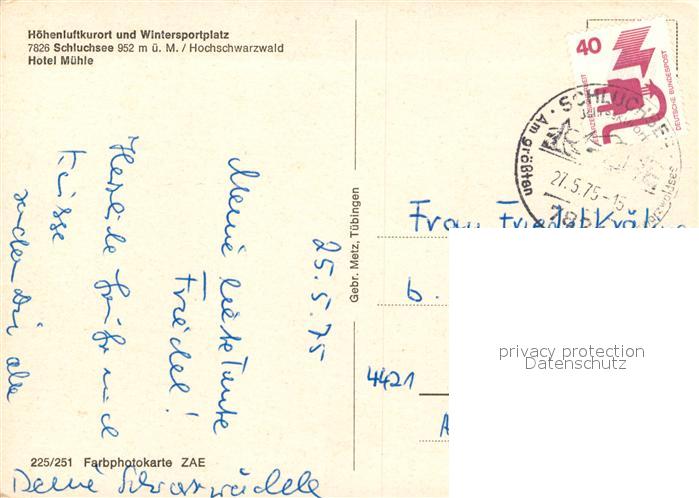 Höhenluftkurort und Wintersportplatz
7826 Schluchsee 952 m ü. M. / Hochschwarzwald
Hotel Mühle
25.5.75
Meine liebe Tante
Friedel!
Herzliche Grüße und
Küsse
senden Dir alle
Deine Schwarzwäldele
225/251 Farbphotokarte ZAE
Gebr. Metz, Tübingen
40
DEUTSCHE BUNDESPOST
SCHLUCHSEE
Am größten
27.5.75-15
Frau Friedel
b.
4421
privacy protection
Datenschutz